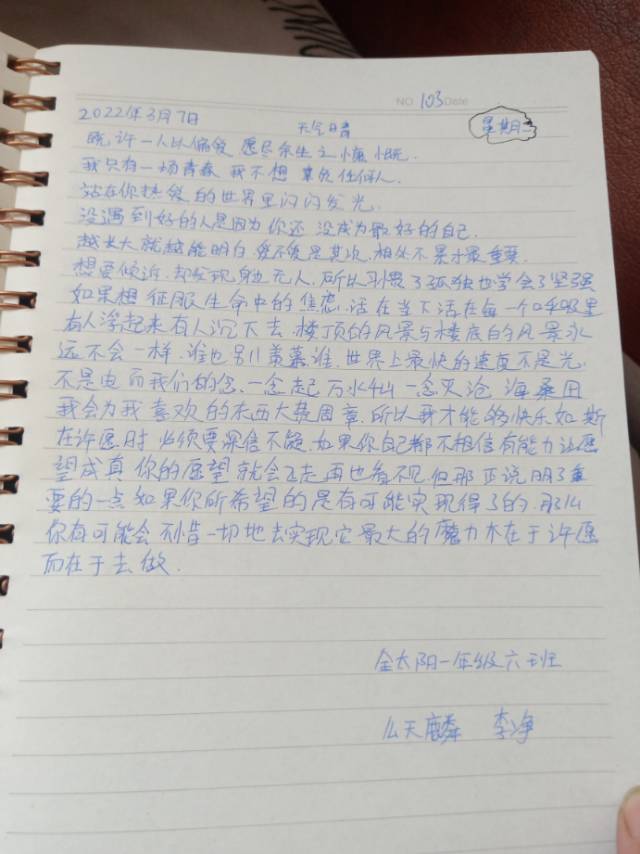 NO 103 Date
2022年3月7日 天气晴 星期二
既许一人以偏爱 愿尽余生之慷慨.
我只有一场青春 我不想 辜负任何人.
站在你热爱的世界里闪闪发光.
没遇到好的人是因为你还没成为最好的自己.
越长大就越能明白 爱不爱是其次, 相处不累才最重要.
想要倾近, 却发现身边无人, 所以习惯了孤独也学会了坚强
如果想征服生命中的焦虑, 活在当下活在每一个呼吸里
有人浮起来有人沉下去 楼顶的风景与楼底的风景永
远不会一样, 谁也别羡慕谁, 世界上最快的速度不是光,
不是电 而我们的念, 一念起 万水千山 一念灭 沧海桑田
我会为我喜欢的东西大费周章, 所以我才能够快乐如斯
在许愿时 必须要深信不疑, 如果你自己都不相信有能力让愿
望成真 你的愿望就会飞走, 再也看不见, 但那正说明了重
要的一点 如果你所希望的是有可能实现得了的, 那么
你有可能会不惜一切地去实现它 最大的魔力不在于许愿
而在于去做.
金太阳一年级六班
么天麟 李净